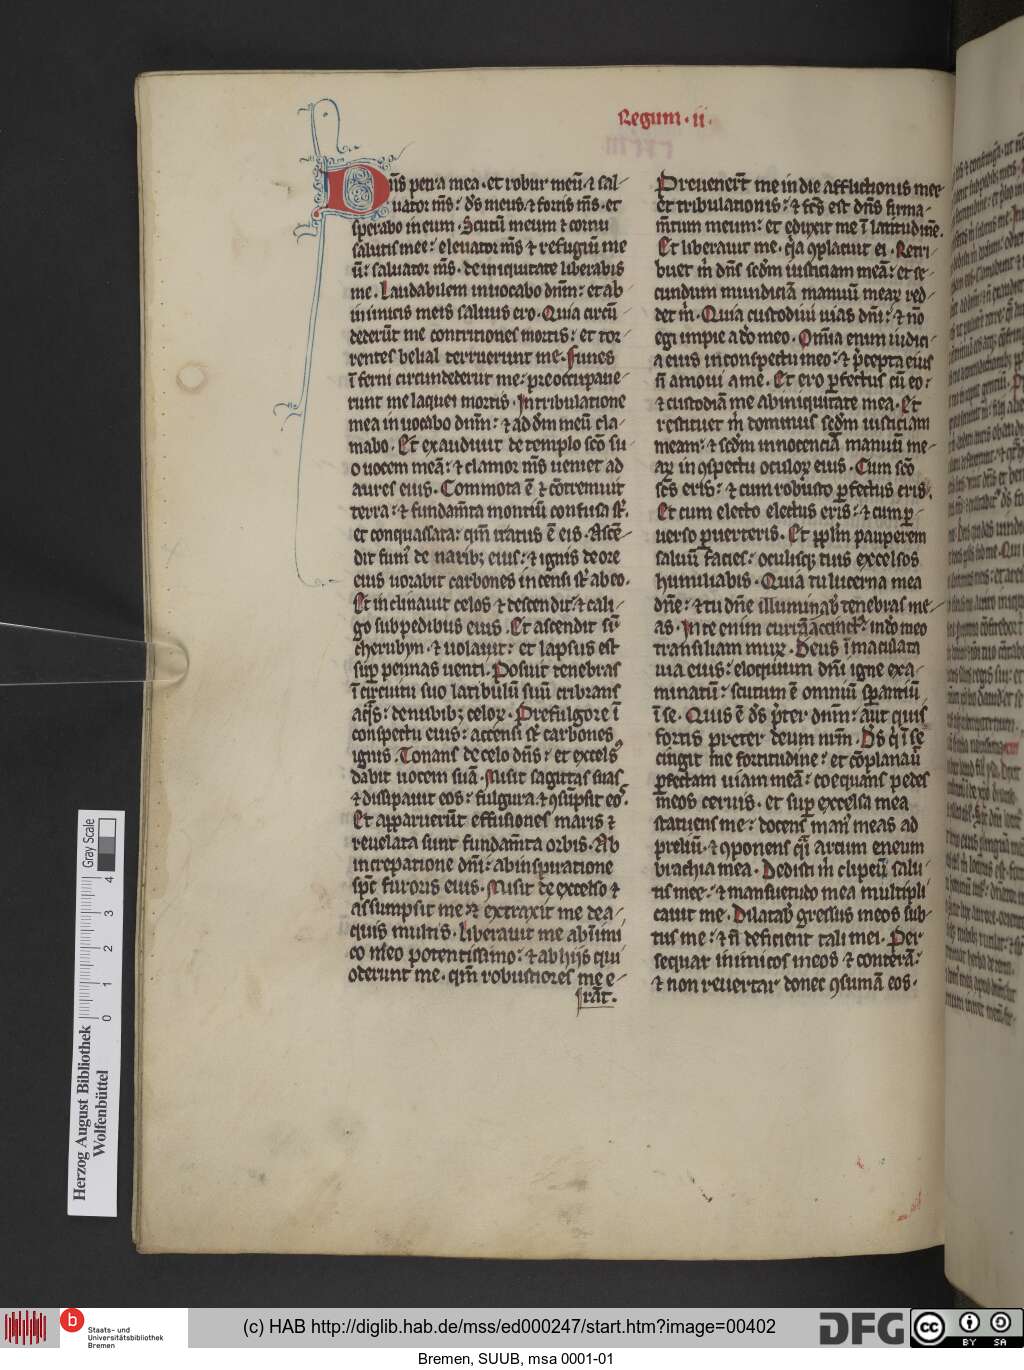 Regum · ii ·
Dn̄s petra mea · et robur meū · ⁊ sal-
uator m̄s : ds̄ meus · ⁊ fortis m̄s · et
sperabo in eum · Scutū meum ⁊ cornu
salutis mee : eleuator m̄s ⁊ refugiū me
ū : saluator m̄s · de iniquitate liberabis
me · Laudabilem inuocabo dn̄m : et ab
inimicis meis saluus ero · Quia circū
dederūt me contritiones mortis : et tor-
rentes belial terruerunt me · Funes
īferni circumdederūt me : preoccupaue-
runt me laquei mortis · In tribulatione
mea inuocabo dn̄m : ⁊ ad dm̄ meū cla-
mabo · Et exaudiuit de templo scō su
o uocem meā : ⁊ clamor m̄s ueniet ad
aures eius · Commota ē ⁊ cōtremuit
terra : ⁊ fundam̄ta montiū concussa st̄ ·
et conquassata : qm̄ iratus ē eis · Ascē-
dit fum' de narib; eius : ⁊ ignis de ore
eius uorabit carbones incensi st̄ ab eo ·
Et inclinauit celos ⁊ descendit : ⁊ cali-
go sub pedibus eius · Et ascendit sū
cherubyn · ⁊ uolauit : et lapsus est
suꝑ pennas uenti · Posuit tenebras
ī circuitu suo latibulū suū cribrans
aq̄s : de nubib; celoꝝ · Prefulgore ī
conspectu eius : accensi st̄ carbones
ignis · Tonans de celo dn̄s : et excels'
dabit uocem suā · Misit sagittas suas
⁊ dissipauit eos : fulgura ⁊ ꝯsūpsit eos ·
Et apparuerūt effusiones maris ⁊
reuelata sunt fundam̄ta orbis · Ab
increpatione dn̄i : ab inspiratione
sp̄c furoris eius · Misit de excelso ⁊
assumpsit me : ⁊ extraxit me de a-
quis multis · Liberauit me ab īimi
co meo potentissimo : ⁊ ab hijs qui
oderunt me · qm̄ robustiores me e-
rāt ·
Preuener̄t me in die afflictionis mee
et tribulationis : ⁊ fc̄s est dn̄s firma-
m̄tum meum : et eduxit me ī latitudinē ·
Et liberauit me · q̇a ꝯplacuit ei · Retri-
buet m̊ dn̄s scd̄m iusticiam meā : et se-
cundum mundiciā manuū meaꝝ red-
det m̊ · Quia custodiui uias dn̄i : ⁊ nō
egi impie a dō meo · Om̄ia enim iudici-
a eius in conspectu meo : ⁊ p̄cepta eius
n̄ amoui a me · Et ero ꝑfectus cū eo :
⁊ custodiā me ab iniquitate mea · Et
restituet m̊ dominus scd̄m iusticiam
meam : ⁊ scd̄m innocenciā manuū me-
aꝝ in ꝯspectu oculoꝝ eius · Cum scō
sc̄s eris : ⁊ cum robusto ꝑfectus eris ·
Et cum electo electus eris : ⁊ cum ꝑ-
uerso ꝑuerteris · Et pp̄lm pauperem
saluū facies : oculisq; tuis excelsos
humiliabis · Quia tu lucerna mea
dn̄e : ⁊ tu dn̄e illuminab' tenebras me-
as · In te enim curr̄a accinct' : in dō meo
transiliam murꝝ · Deus īmaculata
uia eius : eloquium dn̄i igne exa-
minatū : scutum ē omniū sꝑantiū
ī se · Quis ē ds̄ p̄ter dn̄m : aut quis
fortis preter deum nr̄m · Ds̄ q̇ ī se
cingit me fortitudine : et cōplanau̅
ꝑfectam uiam meā : coequans pedes
meos ceruis · et suꝑ excelsa mea
statuens me : docens man' meas ad
preliū · ⁊ ꝯponens q̇i arcum eneum
brachia mea · Dedisti m̊ clipeū salu
tis mee : ⁊ mansuetudo mea multipli
cauit me · Dilatab' gressus meos sub-
tus me : ⁊ n̄ deficient tali mei · Per-
sequar inimicos meos ⁊ conterā :
⁊ non reuertar donec ꝯsumā eos ·
Gray Scale
0 1 2 3 4
Herzog August Bibliothek
Wolfenbüttel
b
Staats- und
Universitätsbibliothek
Bremen
(c) HAB http://diglib.hab.de/mss/ed000247/start.htm?image=00402
DFG
cc BY SA
Bremen, SUUB, msa 0001-01